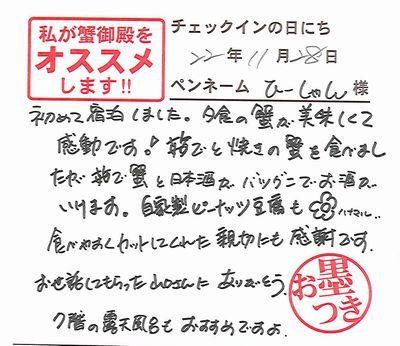 私が蟹御殿を
オススメ
します!!
チェックインの日にち
22年11月28日
ペンネーム ひーしゃん 様
初めて宿泊しました。夕食の蟹が美味しくて
感動です!茹でと焼きの蟹を食べまし
たが茹で蟹と日本酒がバツグンでお酒が
いけます。自家製ピーナッツ豆腐もハナマル...
食べやすくカットしてくれた親切にも感謝です。
お世話してもらった山口さんにありがとう。
7階の露天風呂もおすすめですよ。
お墨つき